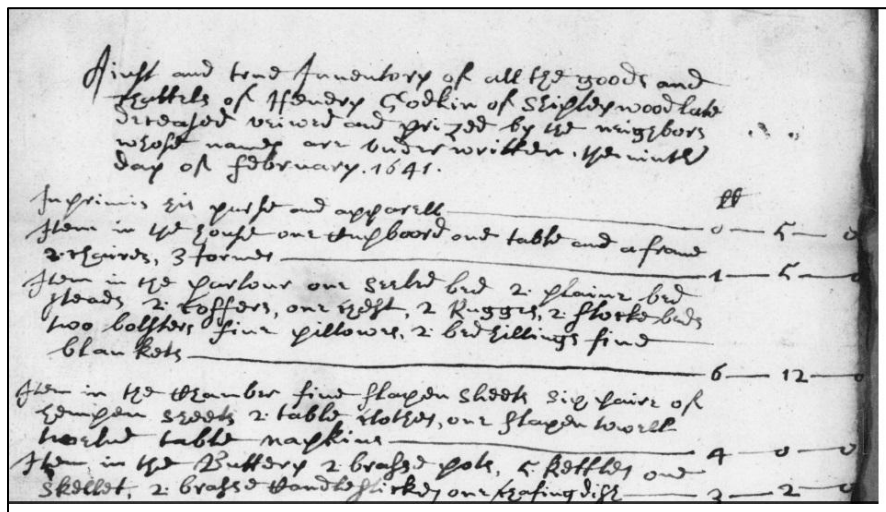 A iust and true Inuentory of all the goods and
Chattels of Henery Godkin of Shipley wood late
deceased veiwed and prized by the neighbors
whose names are vnder written. the ninth
day of february. 1641.
ll
Inprimis his purse and apparell 0 5 0
Item in the house one Cupboord one table and a frame
2 chaires, 3 formes 1 5 0
Item in the parlour one seeled bed 2 plaine bed
steads 2 coffers, one chest, 2 Rugges, 2 flocke beds
two bolsters fiue pillowes, 2 bed hillings fiue
blankets 6 12 0
Item in the Chamber fiue flaxen sheets six paire of
hempen sheets 2 table clothes, one flaxen towell
twelue table napkins 4 0 0
Item in the Buttery 2 brasse pots, 5 kettles one
skellet, 2 brasse Candlestickes one chafing dish 3 2 0